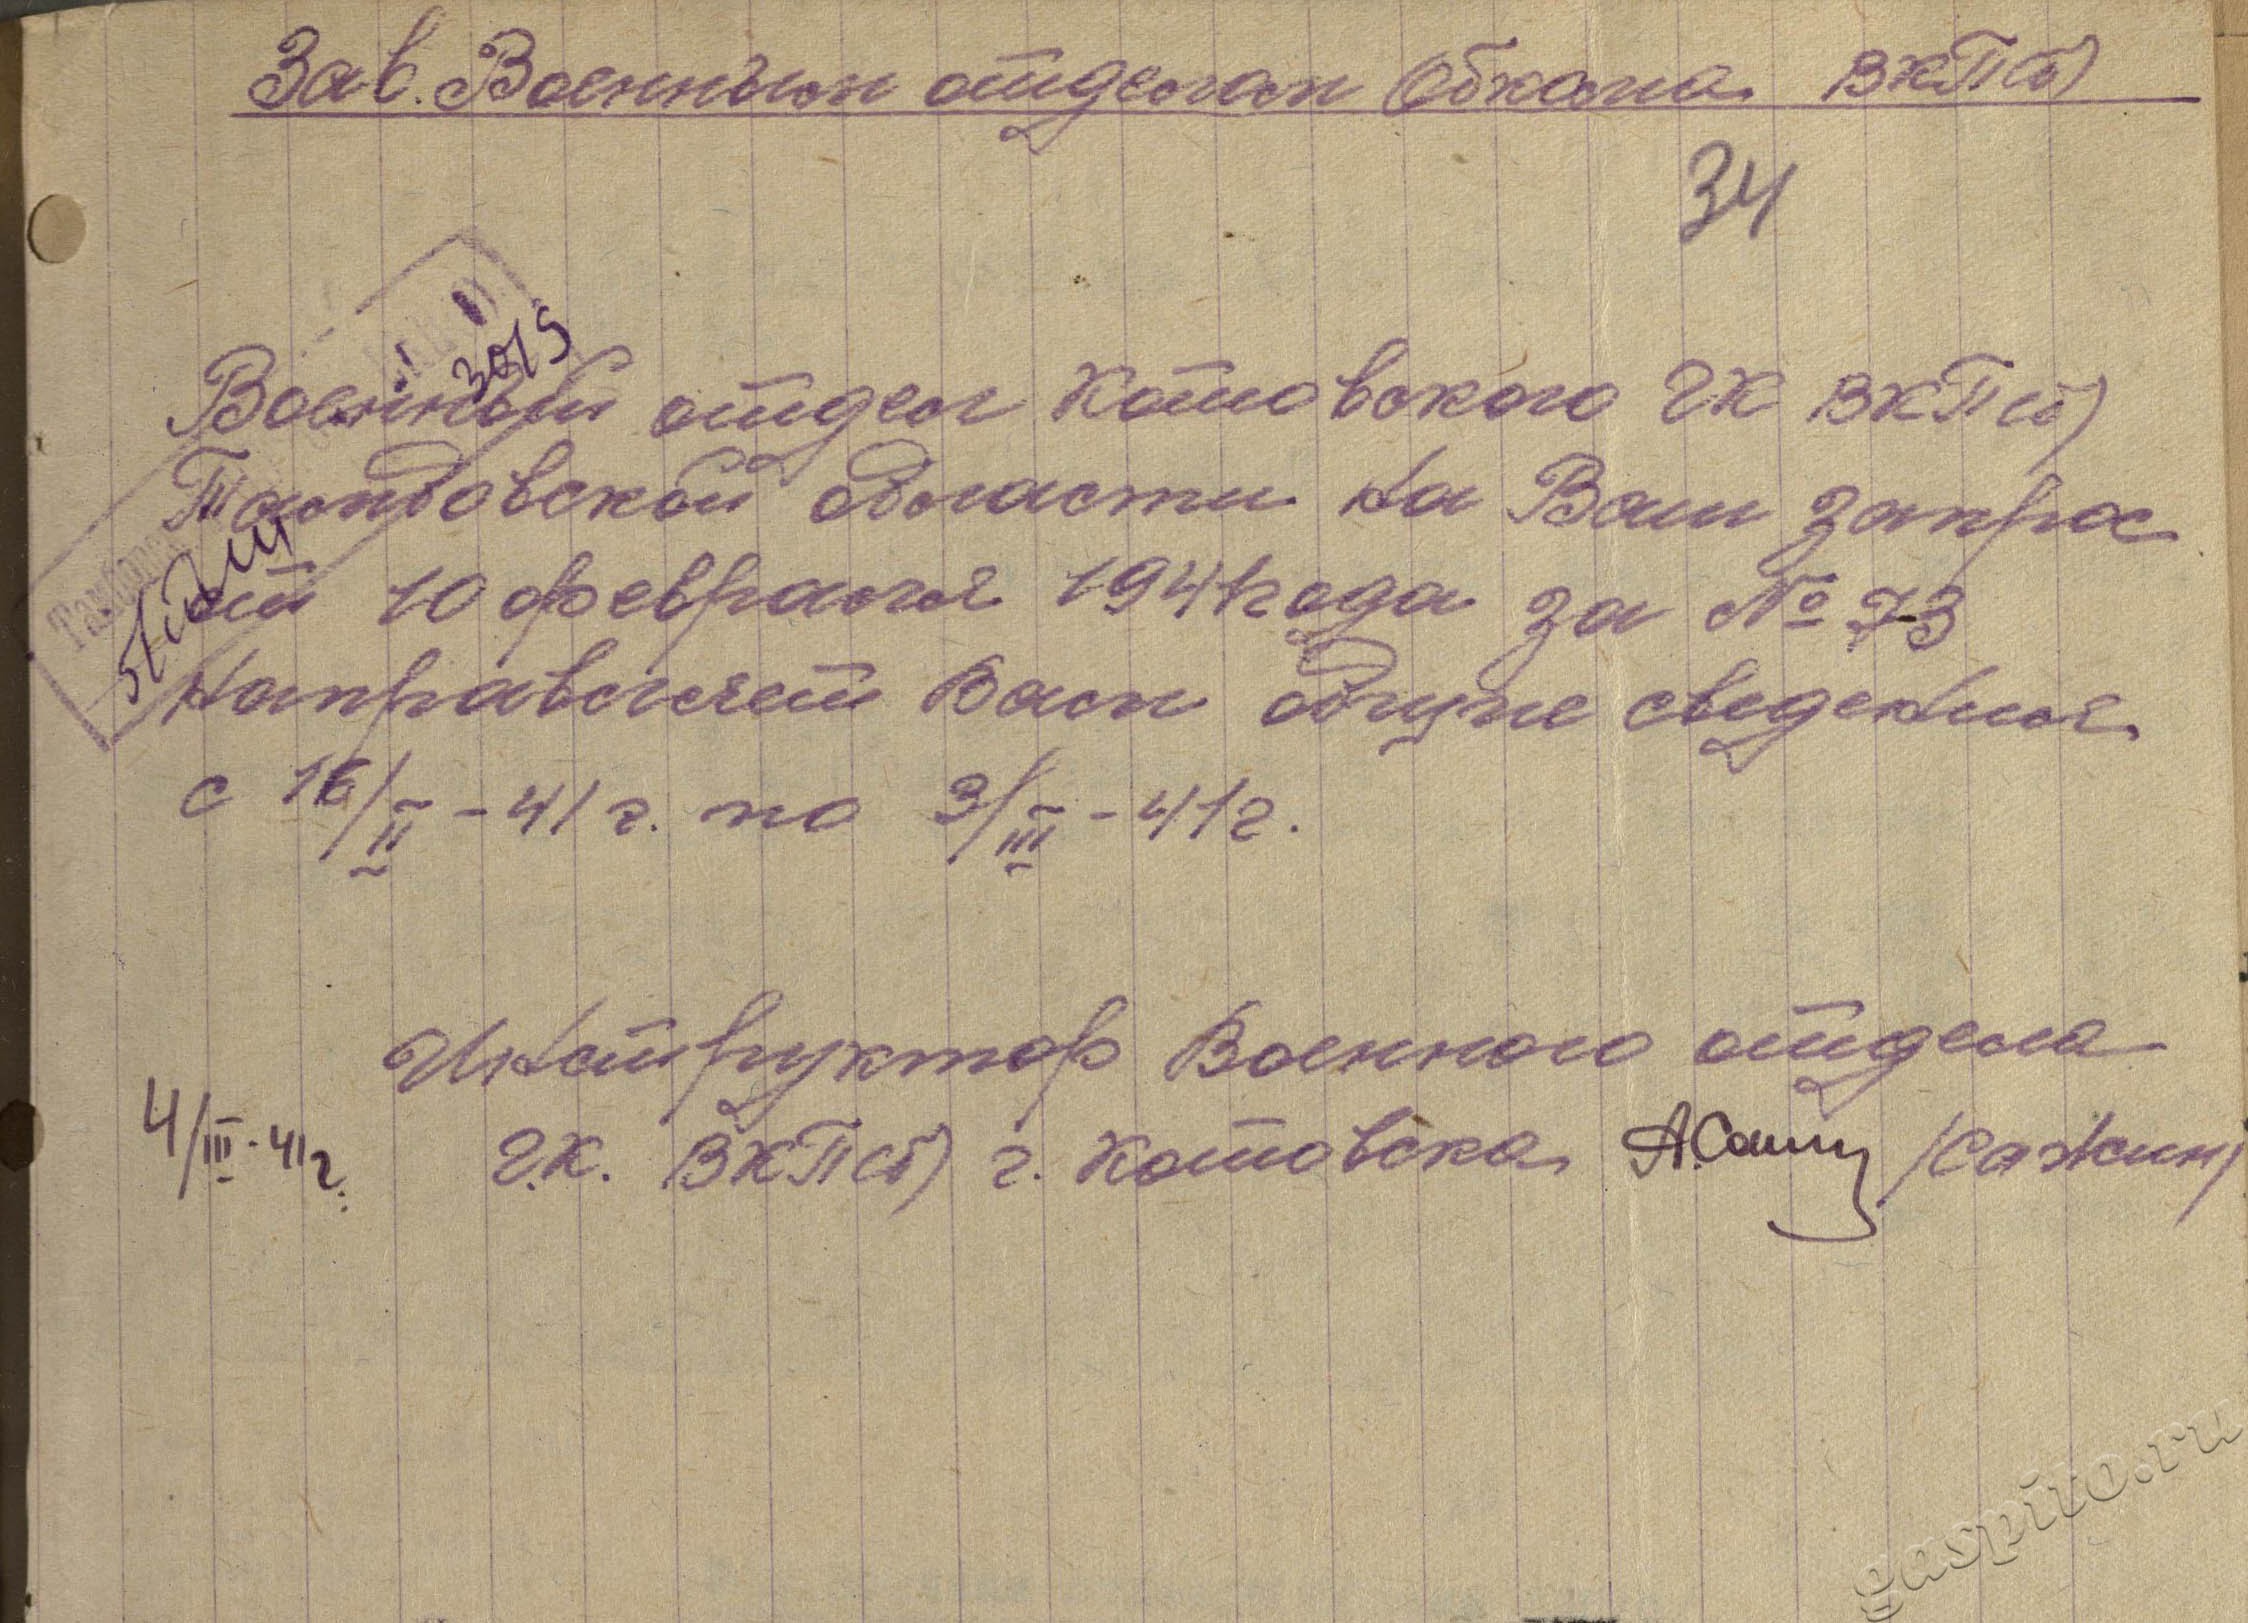 Зав. Военным отделам Обкома ВКП(б)
34
3015
Военный отдел Котовского ГК ВКП(б)
Тамбовской области на Ваш запрос
от 10 февраля 1941 года за № 73
Направляет Вам общие сведения
с 16/II - 41 г. по 3/III - 41 г.
Инструктор Военного отдела
4/III - 41 г.
Г.К. ВКП(б) г. Котовска А.Сажин /Сажин/
gaspito.ru